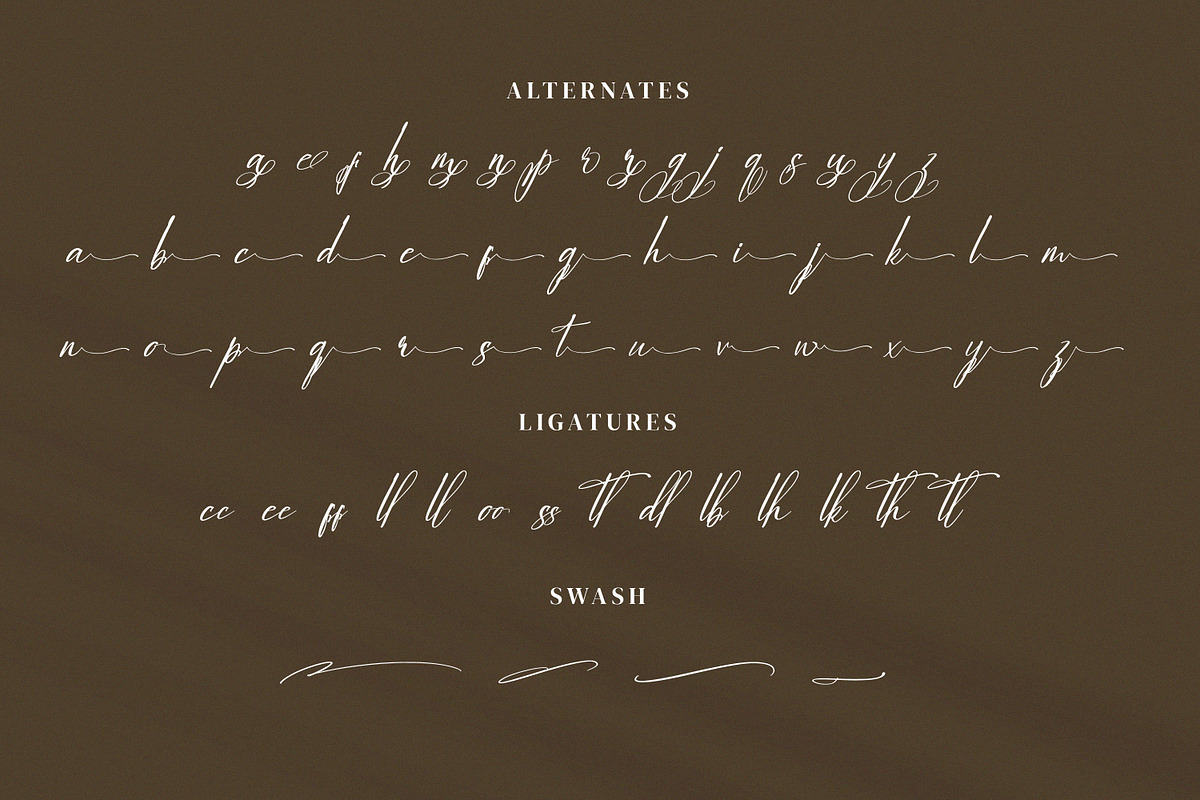 ALTERNATES
a e f h m n p r r g j q s u y z
a b c d e f g h i j k l m
n o p q r s t u v w x y z
LIGATURES
cc ee ff ll ll oo ss tl dl lb lh lk th tt
SWASH